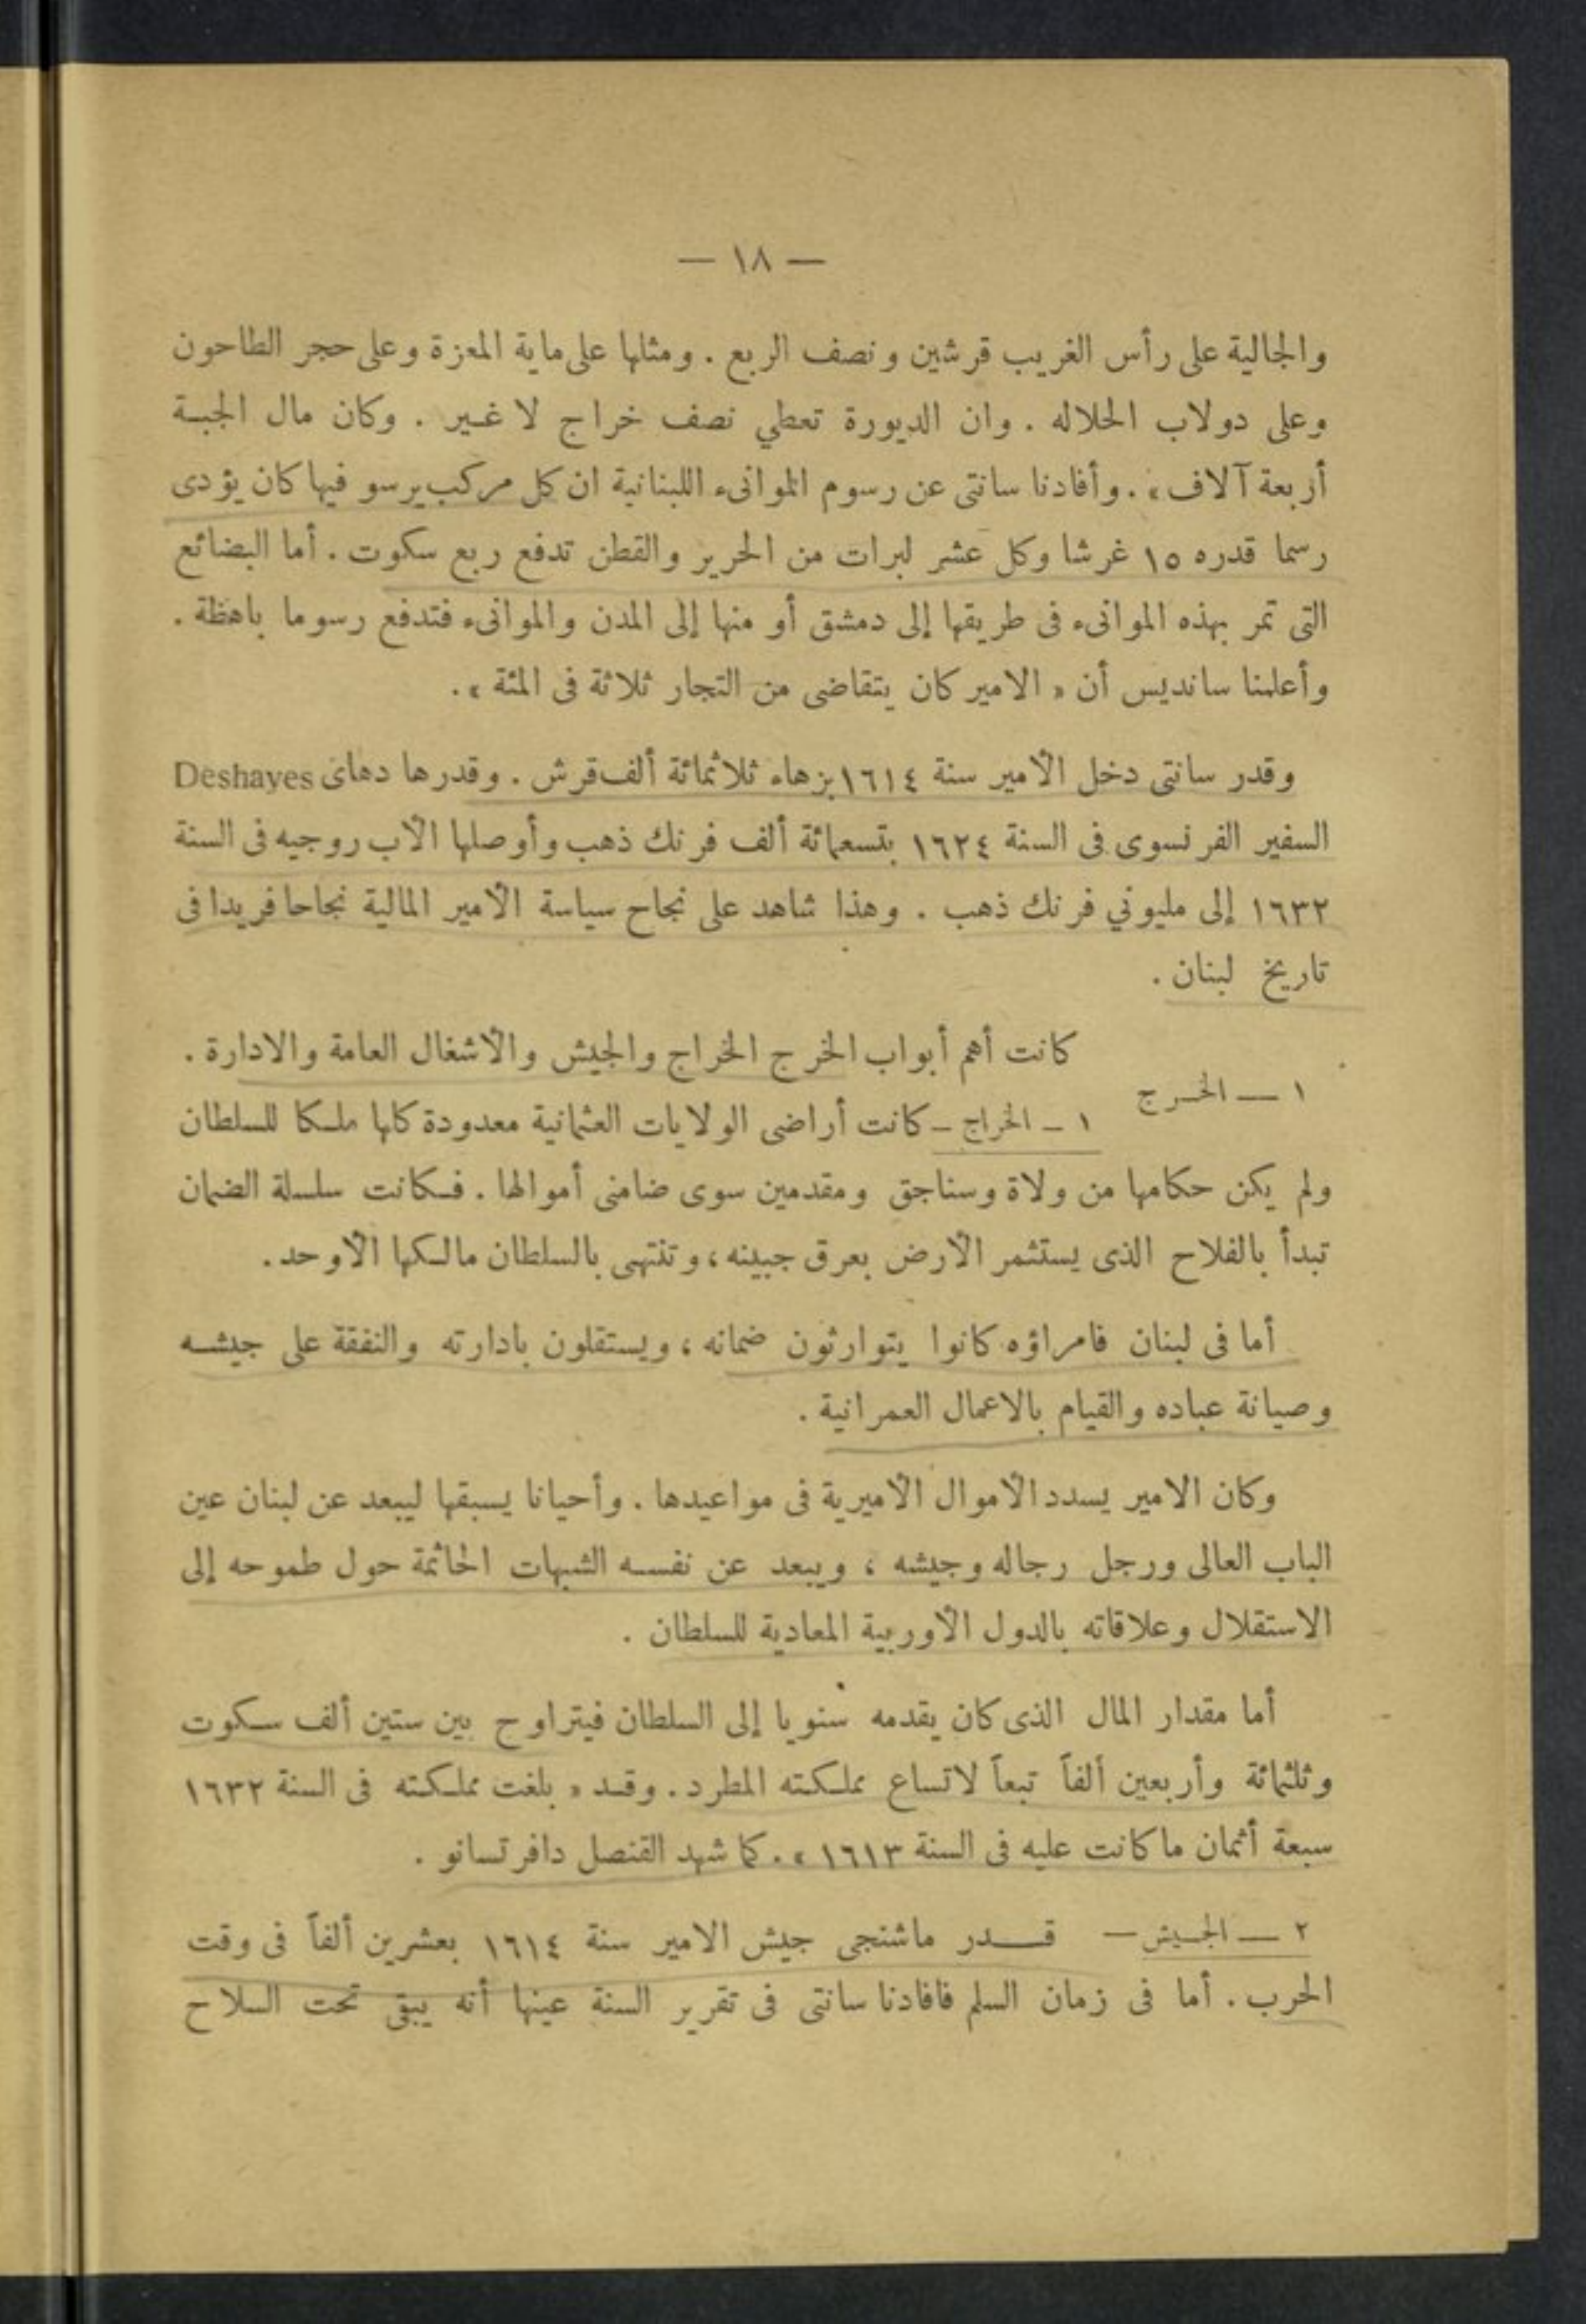 — ١٨ —
والجالية على رأس الغريب قرشين ونصف الربع . ومثلها على ماية المعزة وعلى حجر الطاحون
وعلى دولاب الحلاله . وان الديورة تعطي نصف خراج لا غير . وكان مال الجبة
أربعة آلاف » . وأفادنا سانتى عن رسوم الموانىء اللبنانية ان كل مركب يرسو فيها كان يؤدى
رسما قدره ١٥ غرشا وكل عشر لبرات من الحرير والقطن تدفع ربع سكوت . أما البضائع
التى تمر بهذه الموانىء فى طريقها إلى دمشق أو منها إلى المدن والموانىء فتدفع رسوما باهظة .
وأعلمنا سانديس أن « الامير كان يتقاضى من التجار ثلاثة فى المئة » .
وقدر سانتى دخل الأمير سنة ١٦١٤ بزهاء ثلاثمائة ألف قرش . وقدرها دهاى Deshayes
السفير الفرنسوى فى السنة ١٦٢٤ بتسعمائة ألف فرنك ذهب وأوصلها الأب روجيه فى السنة
١٦٣٢ إلى مليوني فرنك ذهب . وهذا شاهد على نجاح سياسة الأمير المالية نجاحا فريدا فى
تاريخ لبنان .
كانت أهم أبواب الخرج الخراج والجيش والأشغال العامة والادارة .
١ — الخرج
١ – الخراج – كانت أراضى الولايات العثمانية معدودة كلها ملكا للسلطان
ولم يكن حكامها من ولاة وسناجق ومقدمين سوى ضامنى أموالها . فكانت سلسلة الضمان
تبدأ بالفلاح الذى يستثمر الأرض بعرق جبينه ، وتنتهى بالسلطان مالكها الأوحد .
أما فى لبنان فامراؤه كانوا يتوارثون ضمانه ، ويستقلون بادارته والنفقة على جيشه
وصيانة عباده والقيام بالاعمال العمرانية .
وكان الامير يسدد الأموال الأميرية فى مواعيدها . وأحيانا يسبقها ليبعد عن لبنان عين
الباب العالى ورجل رجاله وجيشه ، ويبعد عن نفسه الشبهات الحائمة حول طموحه إلى
الاستقلال وعلاقاته بالدول الأوربية المعادية للسلطان .
أما مقدار المال الذى كان يقدمه سنويا إلى السلطان فيتراوح بين ستين ألف سكوت
وثلثمائة وأربعين ألفاً تبعاً لاتساع مملكته المطرد . وقد « بلغت مملكته فى السنة ١٦٣٢
سبعة أثمان ما كانت عليه فى السنة ١٦١٣ » . كما شهد القنصل دافرتسانو .
٢ — الجيش — قدر ماشنجى جيش الامير سنة ١٦١٤ بعشرين ألفاً فى وقت
الحرب . أما فى زمان السلم فافادنا سانتى فى تقرير السنة عينها أنه يبقى تحت السلاح